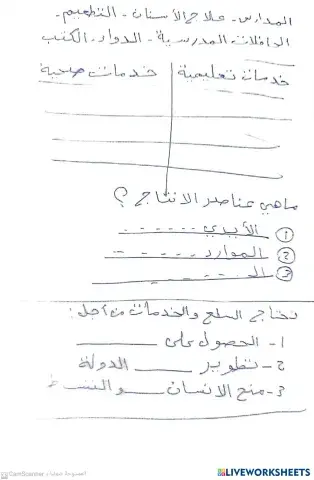 المدارس - علاج الأسنان - التطعيم -
الحافلات المدرسية - الدواء - الكتب
خدمات تعليمية | خدمات صحية
ماهي عناصر الانتاج ؟
① الأيدي ------
② الموارد -----
③ الـ ------
نحتاج السلع والخدمات من أجل :
1- الحصول على ______
2- تطوير ____ الدولة
3- منح الانسان ____ و
الممسوحة ضوئيا بـ CamScanner
LIVEWORKSHEETS